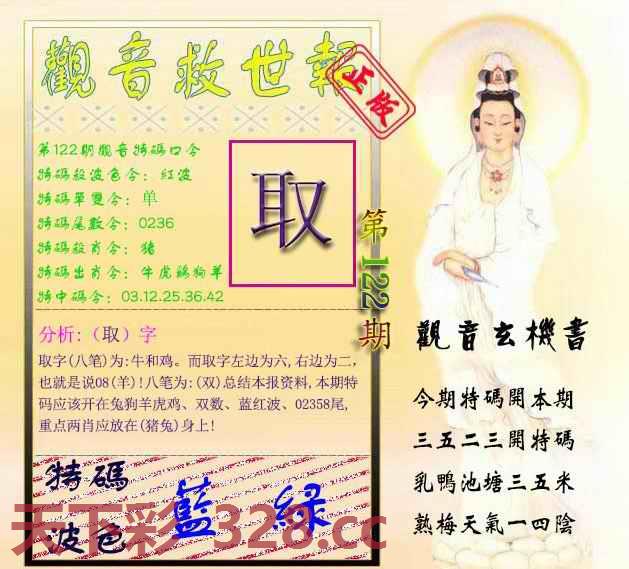 觀音救世報
正版
第122期觀音特碼口令
特碼殺波色令：紅波
特碼單雙令：单
特碼尾數令：0236
特碼殺肖令：豬
特碼出肖令：牛虎鷄狗羊
特中碼令：03.12.25.36.42
取
第122期
分析:（取）字
取字(八笔)为:牛和鸡。而取字左边为六,右边为二,
也就是说08(羊)!八笔为:(双)总结本报资料,本期特
码应该开在兔狗羊虎鸡、双数、蓝红波、02358尾,
重点两肖应放在(猪兔)身上!
特碼
波色
藍 綠
天下彩 328.cc
觀音玄機書
今期特碼開本期
三五二三開特碼
乳鴨池塘三五米
熟梅天氣一四陰